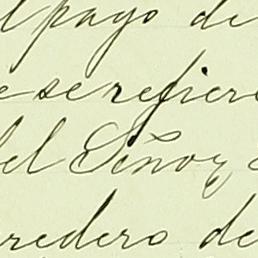 l pago de
e se refiere
del Señor
redero de